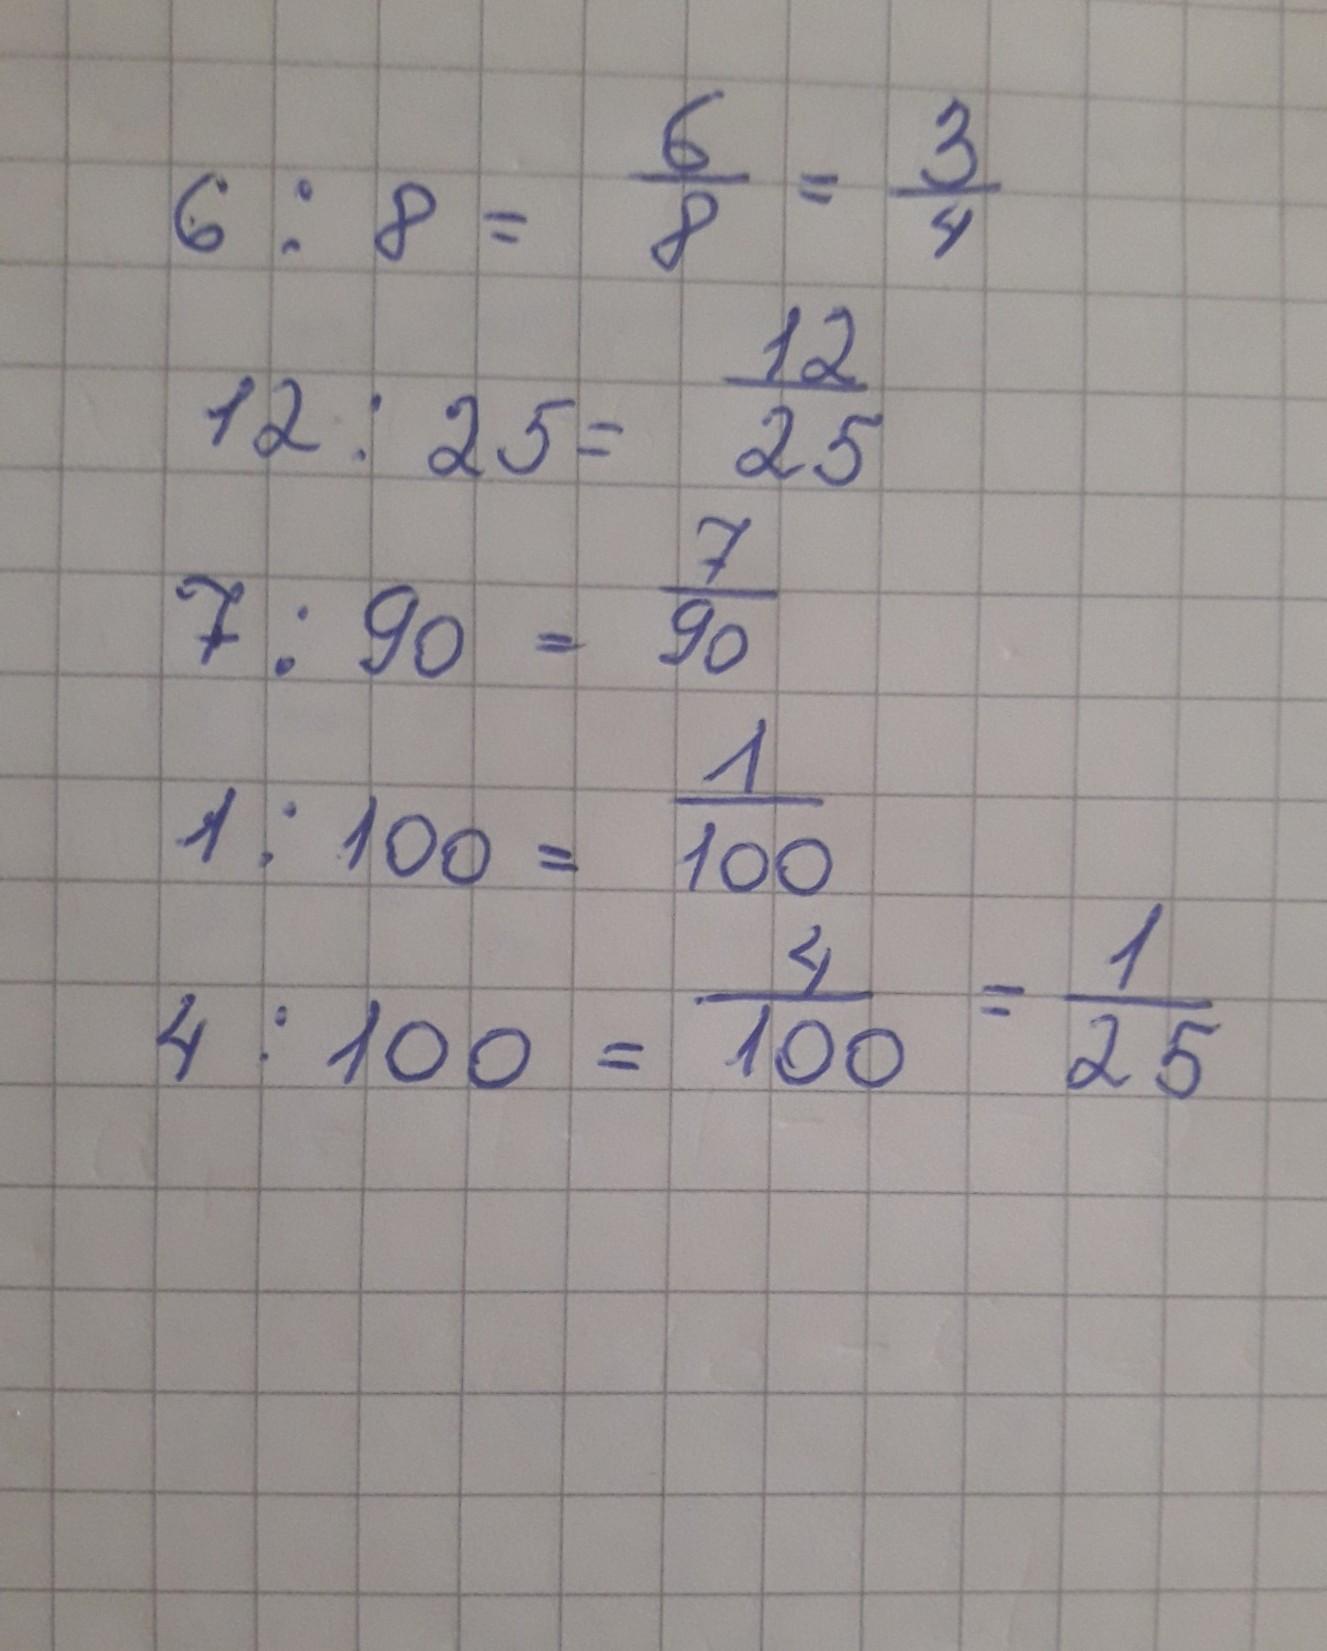 6 : 8 = 6/8 = 3/4
12 : 25 = 12/25
7 : 90 = 7/90
1 : 100 = 1/100
4 : 100 = 4/100 = 1/25